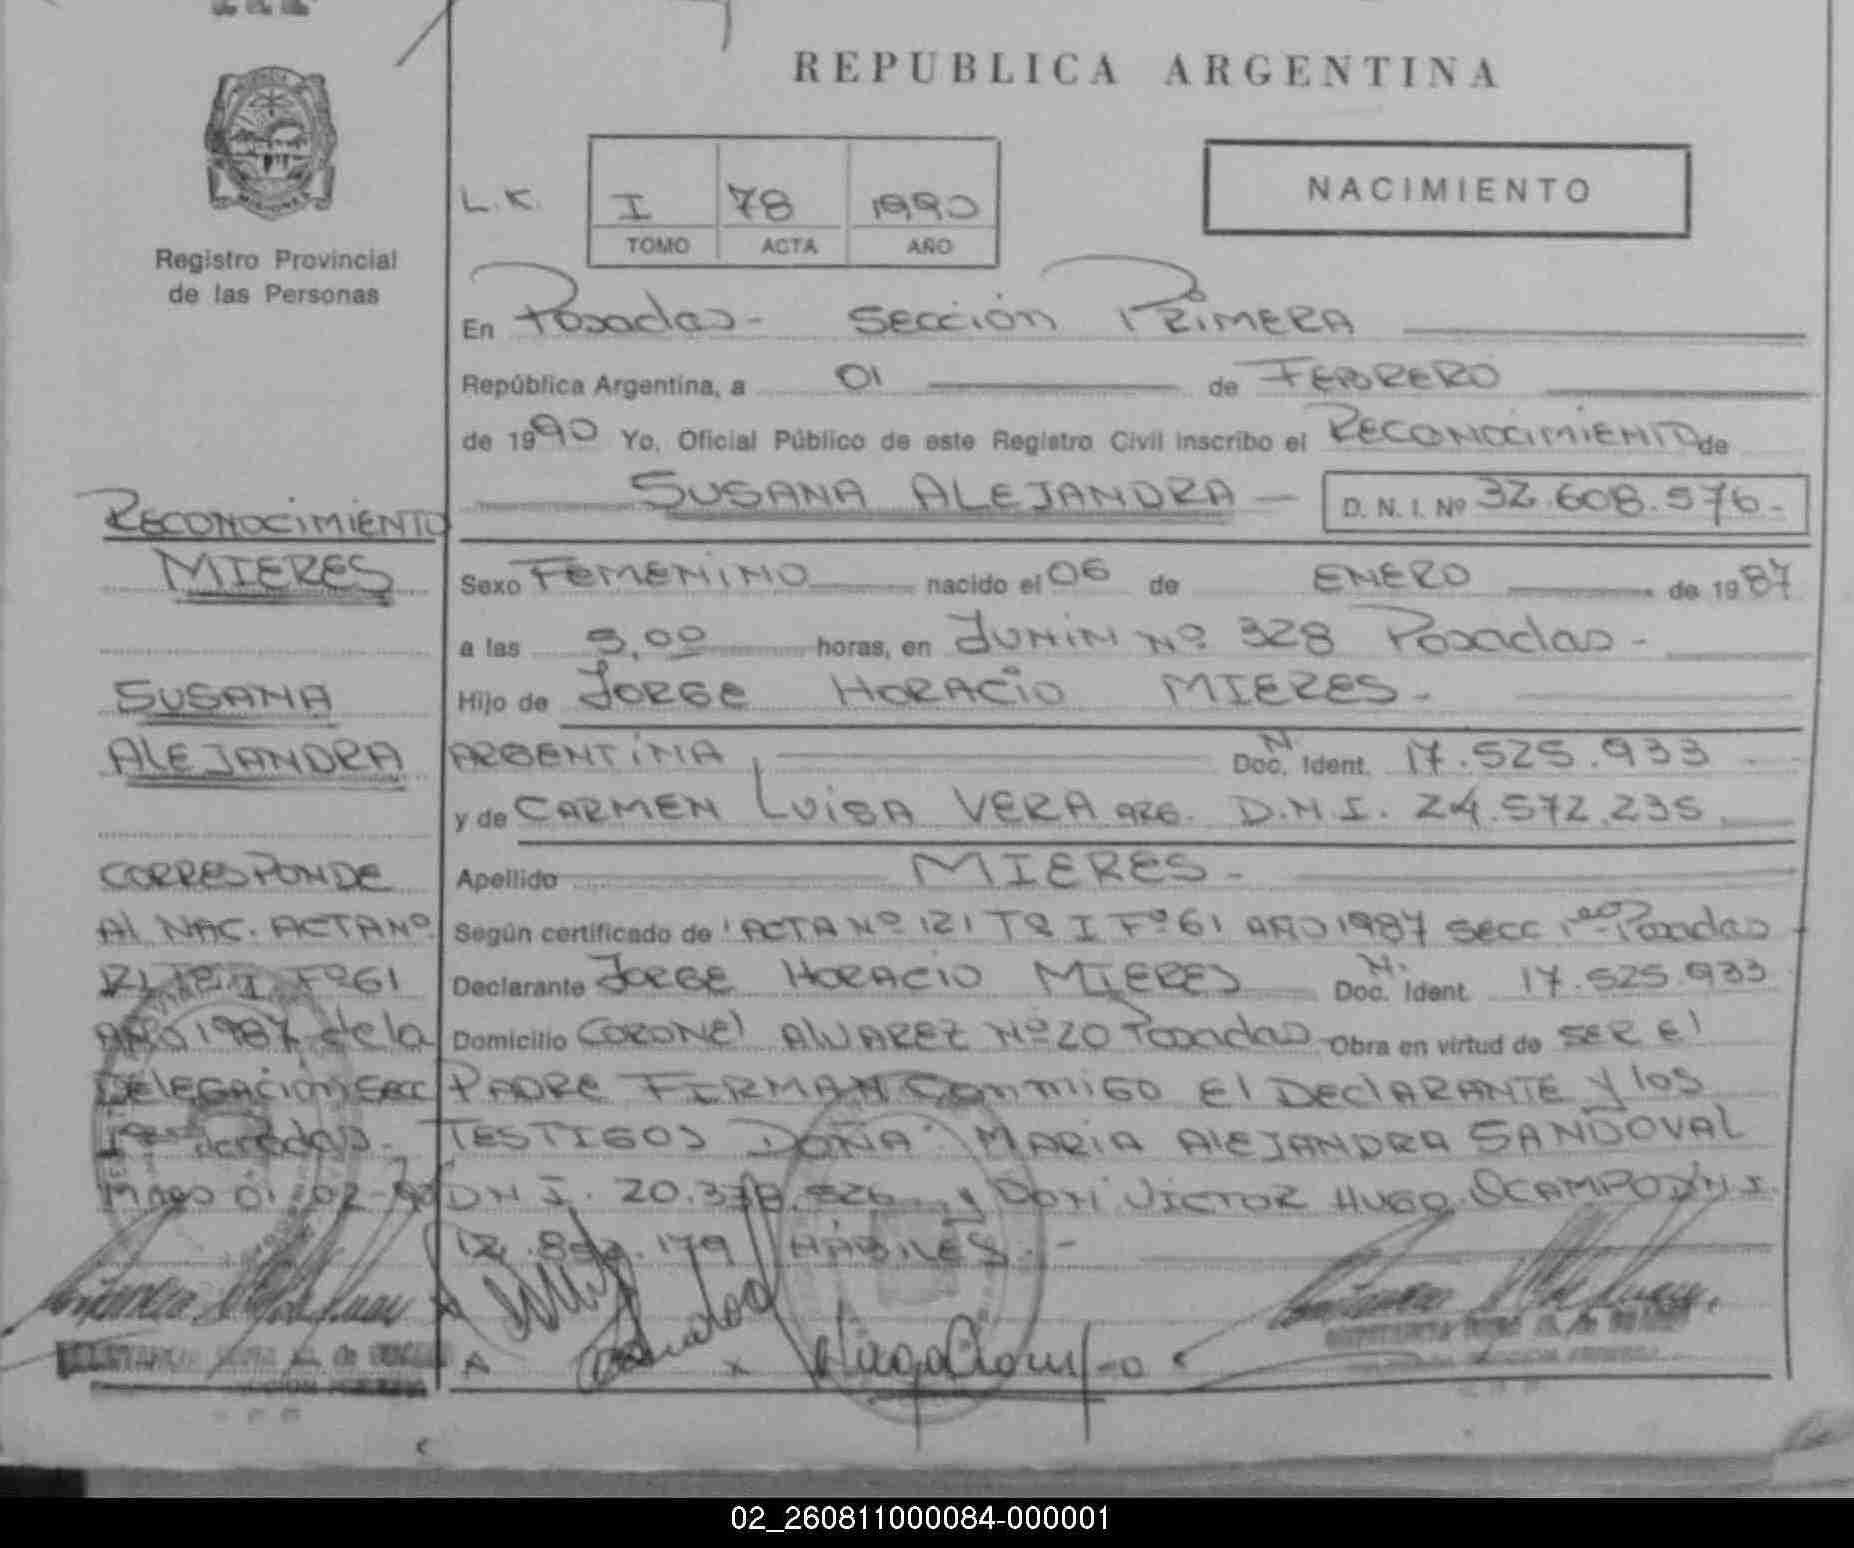 REPUBLICA ARGENTINA
Registro Provincial
de las Personas
L.K. I 78 1990
TOMO ACTA AÑO
NACIMIENTO
En Posadas - Sección PRIMERA
República Argentina, a 01 de FEBRERO
de 1990 Yo, Oficial Público de este Registro Civil inscribo el RECONOCIMIENTO de
SUSANA ALEJANDRA - D. N. I. Nº 32.608.576-
Sexo FEMENINO nacido el 06 de ENERO de 1987
a las 5,00 horas, en JUNIN Nº 328 Posadas -
Hijo de JORGE HORACIO MIERES -
ARGENTINA Doc. Ident. 17.525.933
y de CARMEN LUISA VERA ARG. D.N.I. 24.572.235
Apellido MIERES -
Según certificado de ACTA Nº 121 Tº I Fº 61 AÑO 1987 Secc 1ra Posadas
Declarante JORGE HORACIO MIERES Doc. Ident. 17.525.933
Domicilio CORONEL ALVAREZ Nº 20 Posadas Obra en virtud de SER El
PADRE FIRMAN CONMIGO El DEClARANTE y los
TESTIGOS DOÑA MARIA AlEJANDRA SANDOVAL
D N I. 20.378.526 y DON VICTOR HUGO OCAMPO D.N.I.
HABILES. -
RECONOCIMIENTO
MIERES
SUSANA
ALEJANDRA
CORRESPONDE
Al NAC. ACTA Nº
121 Tº I Fº 61
AÑO 1987 de la
DELEGACION SECC
1ra Posadas -
01-02-90
02_260811000084-000001